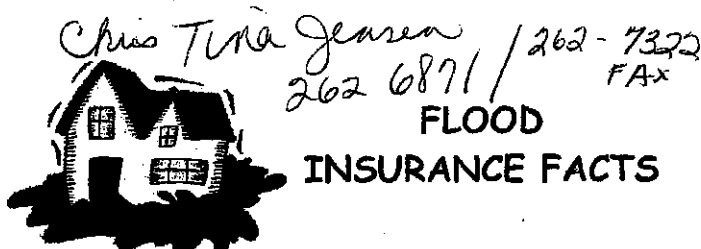 Chris Tina Jensen
262 6871 / 262-7322
FAX
FLOOD
INSURANCE FACTS